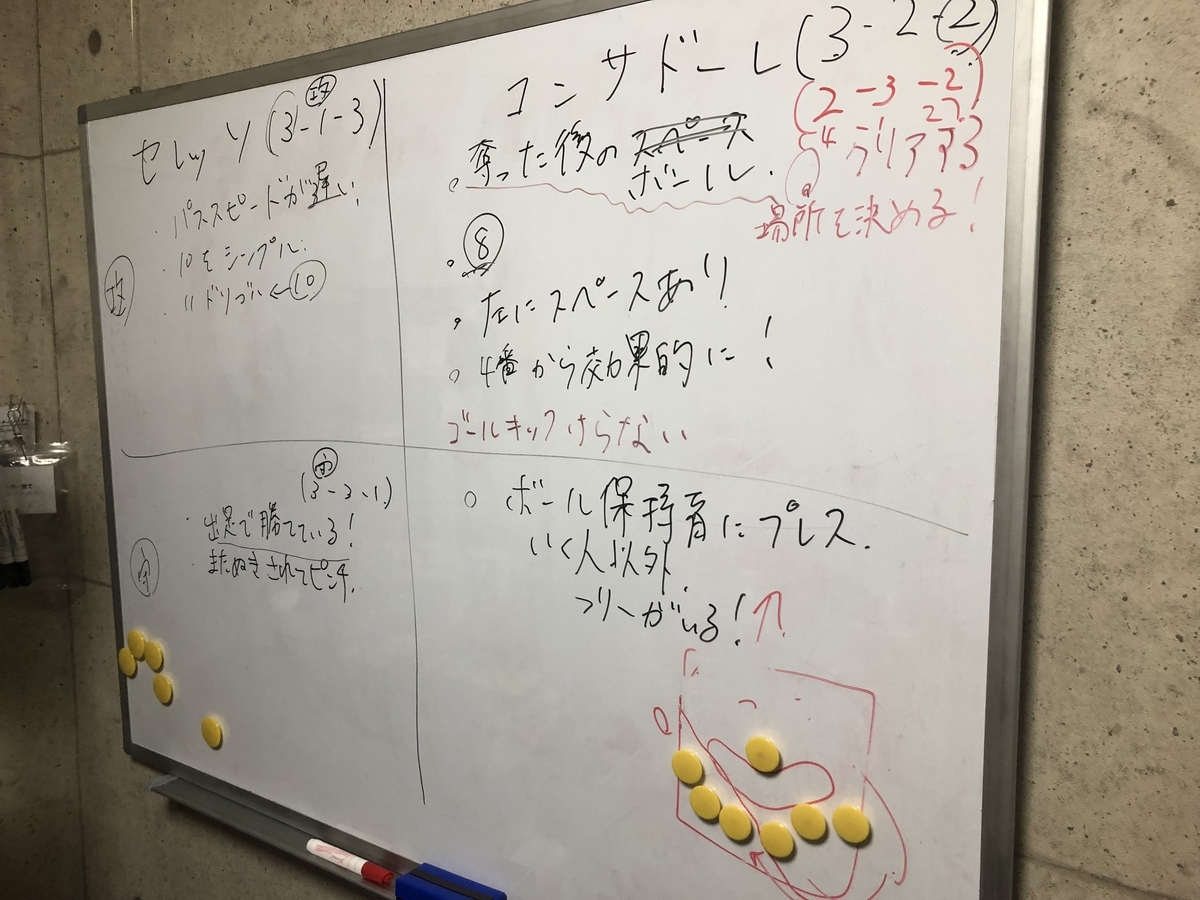 攻
セレッソ(3-1-3)
・パススピードが遅い!
攻
・10をシンプル
・〃ドリブル←⑩
守
(3-3-1)
・出足で勝てている!
守
・またぬきされてピンチ.
コンサドーレ(3-2-2)
(2-3-2)
。奪った後のスペース
ボール.
クリアする
場所を決める!
・⑧
・左にスペースあり!
。4番から効果的に!
ゴールキックけらない
。ボール保持者にプレス
いく人以外.
フリーがいる!